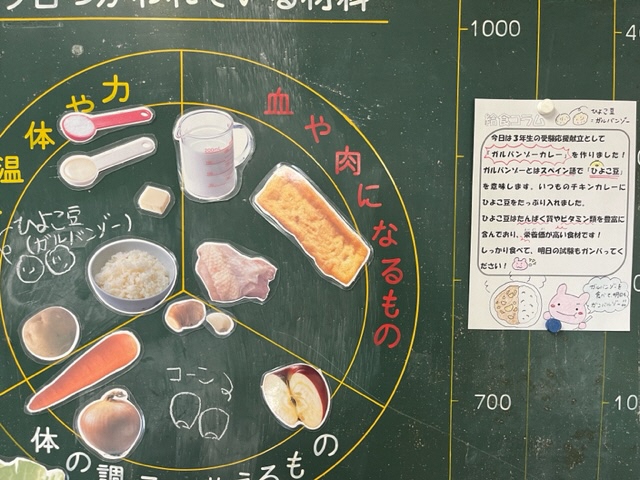 つかわれている材料
力や体温
血や肉になるもの
ひよこ豆
(ガルバンゾー)
コーン
体の調
るもの
1000
700
給食コラム
ひよこ豆
=ガルバンゾー
今日は3年生の受験応援献立として
「ガルバンゾーカレー」を作りました!
ガルバンゾーとはスペイン語で「ひよこ豆」
を意味します。いつものチキンカレーに
ひよこ豆をたっぷり入れました。
ひよこ豆はたんぱく質やビタミン類を豊富に
含んでおり、栄養価が高い食材です!
しっかり食べて、明日の試験もガンバってく
ださい!
ガルバンゾーを
食べて明日も
ガンバルゾー!!